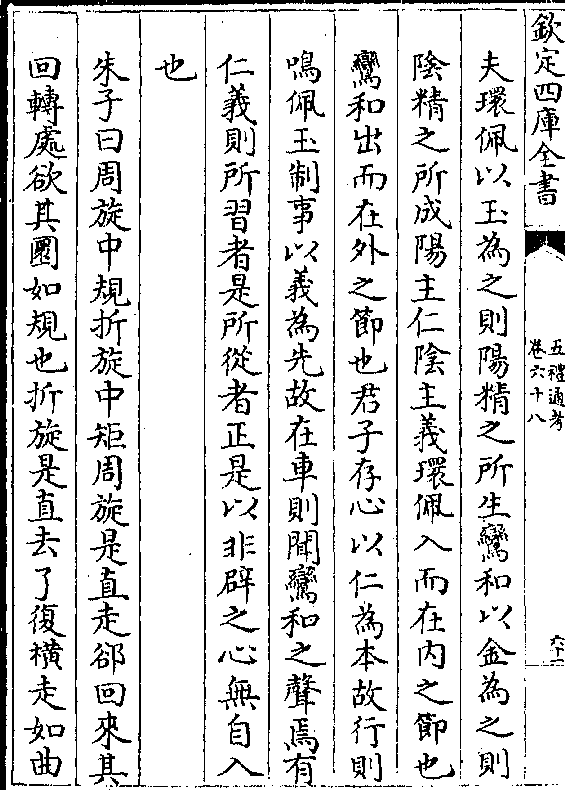 欽定四庫全書
五禮通考
卷六十八
夫環佩以玉為之則陽精之所生鸞和以金為之則
陰精之所成陽主仁陰主義環佩入而在内之節也
鸞和出而在外之節也君子存心以仁為本故行則
鳴佩玉制事以義為先故在車則聞鸞和之聲焉有
仁義則所習者是所從者正是以非辟之心無自入
也
朱子曰周旋中規折旋中矩周旋是直走郤回來其
回轉處欲其圜如規也折旋是直去了復橫走如曲